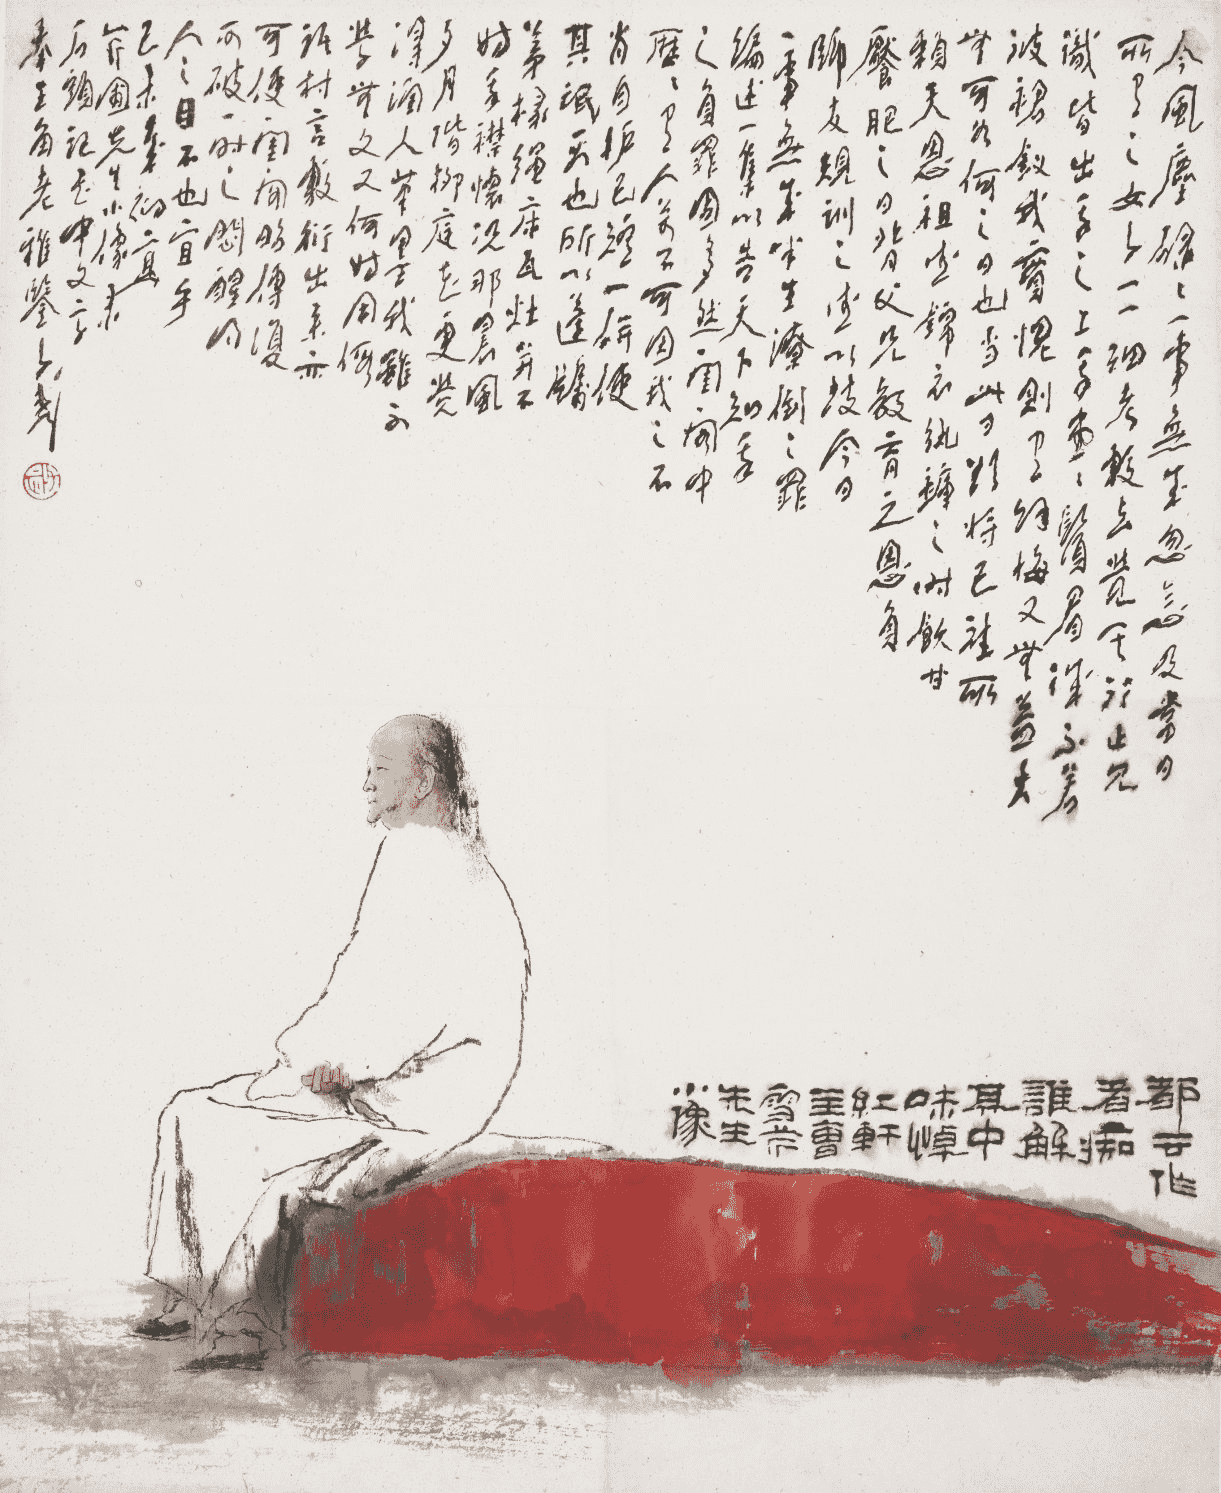 今風塵碌々一事無成忽念及當日
所有之女子一一細考較去覺其行止見
識皆出我之上我堂々鬚眉誠不若
彼裙釵我實愧則有餘悔又無益大
無可如何之日也當此日欲將已往所
賴天恩祖德錦衣紈絝之時飫甘
饜肥之日背父兄教育之恩負
師友規訓之德以致今日
一事無成半生潦倒之罪
編述一集以告天下知我
之負罪固多然閨閣中
歷々有人萬不可因我之不
肖自护已短一併使
其泯滅也所以蓬牖
茅椽繩床瓦灶并不
妨我襟懷況那晨風
夕月階柳庭花更覺
得潤人筆墨我雖不
學無文又何妨用假
語村言敷衍出來亦
可使閨閣昭傳復
可破一時之悶醒同
人之目不也宜乎
己未
芹圃先生小像录
石頭記書中文字
奉王角老雅鑒
都云作
者痴
誰解
其中
味悼
紅軒
主曹
雪芹
先生
小像